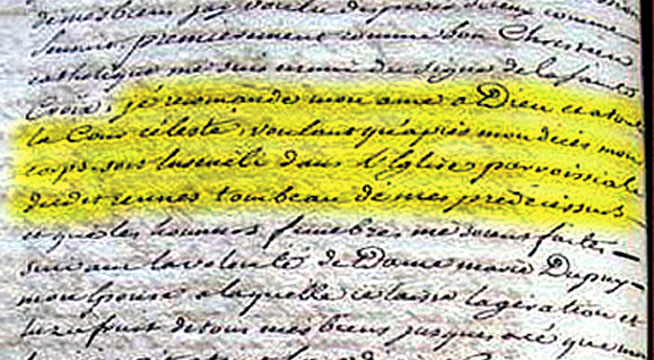 de mes biens jay voulu disposer d'iceux comme
suivant, premierement comme bon Chretien
catholique me suis muni du signe de la sainte
Croix, je recomande mon ame a Dieu et a toute
la Cour céleste, voulant qu'après mon décés mon
corps soit Inseveli dans l'Eglise parroissiale
dudit rennes tombeau de mes prédécesseurs
et que les honneurs funebres me soient faites
suivant la volonté de Dame marie Dupuy
mon Epouse a laquelle je laisse la gération et
luzufruit de tous mes biens jusques a cé que mon